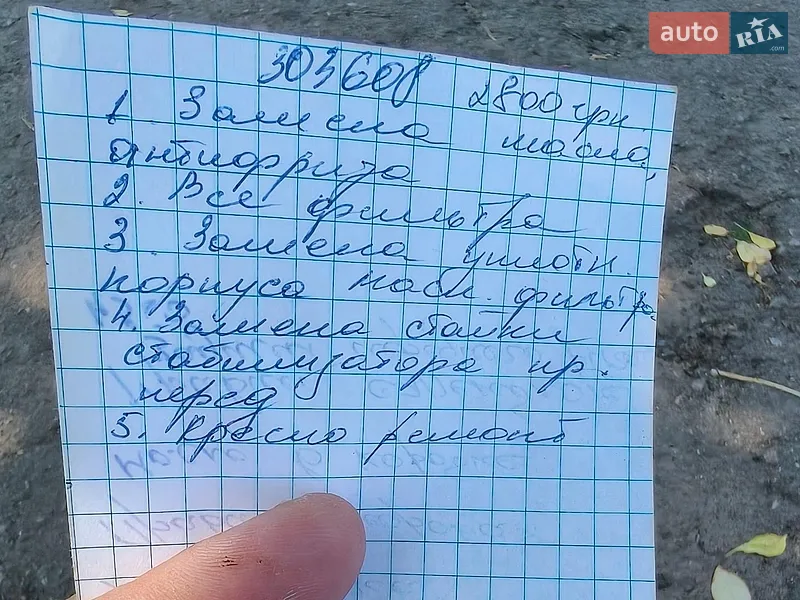 auto RIA .com
303608 2800 грн.
1. Замена масла,
антифриза
2. Все фильтра
3. Замена уплотн.
корпуса масл. фильтра
4. Замена стойки
стабилизатора пр.
перед
5. Кресло ремонт